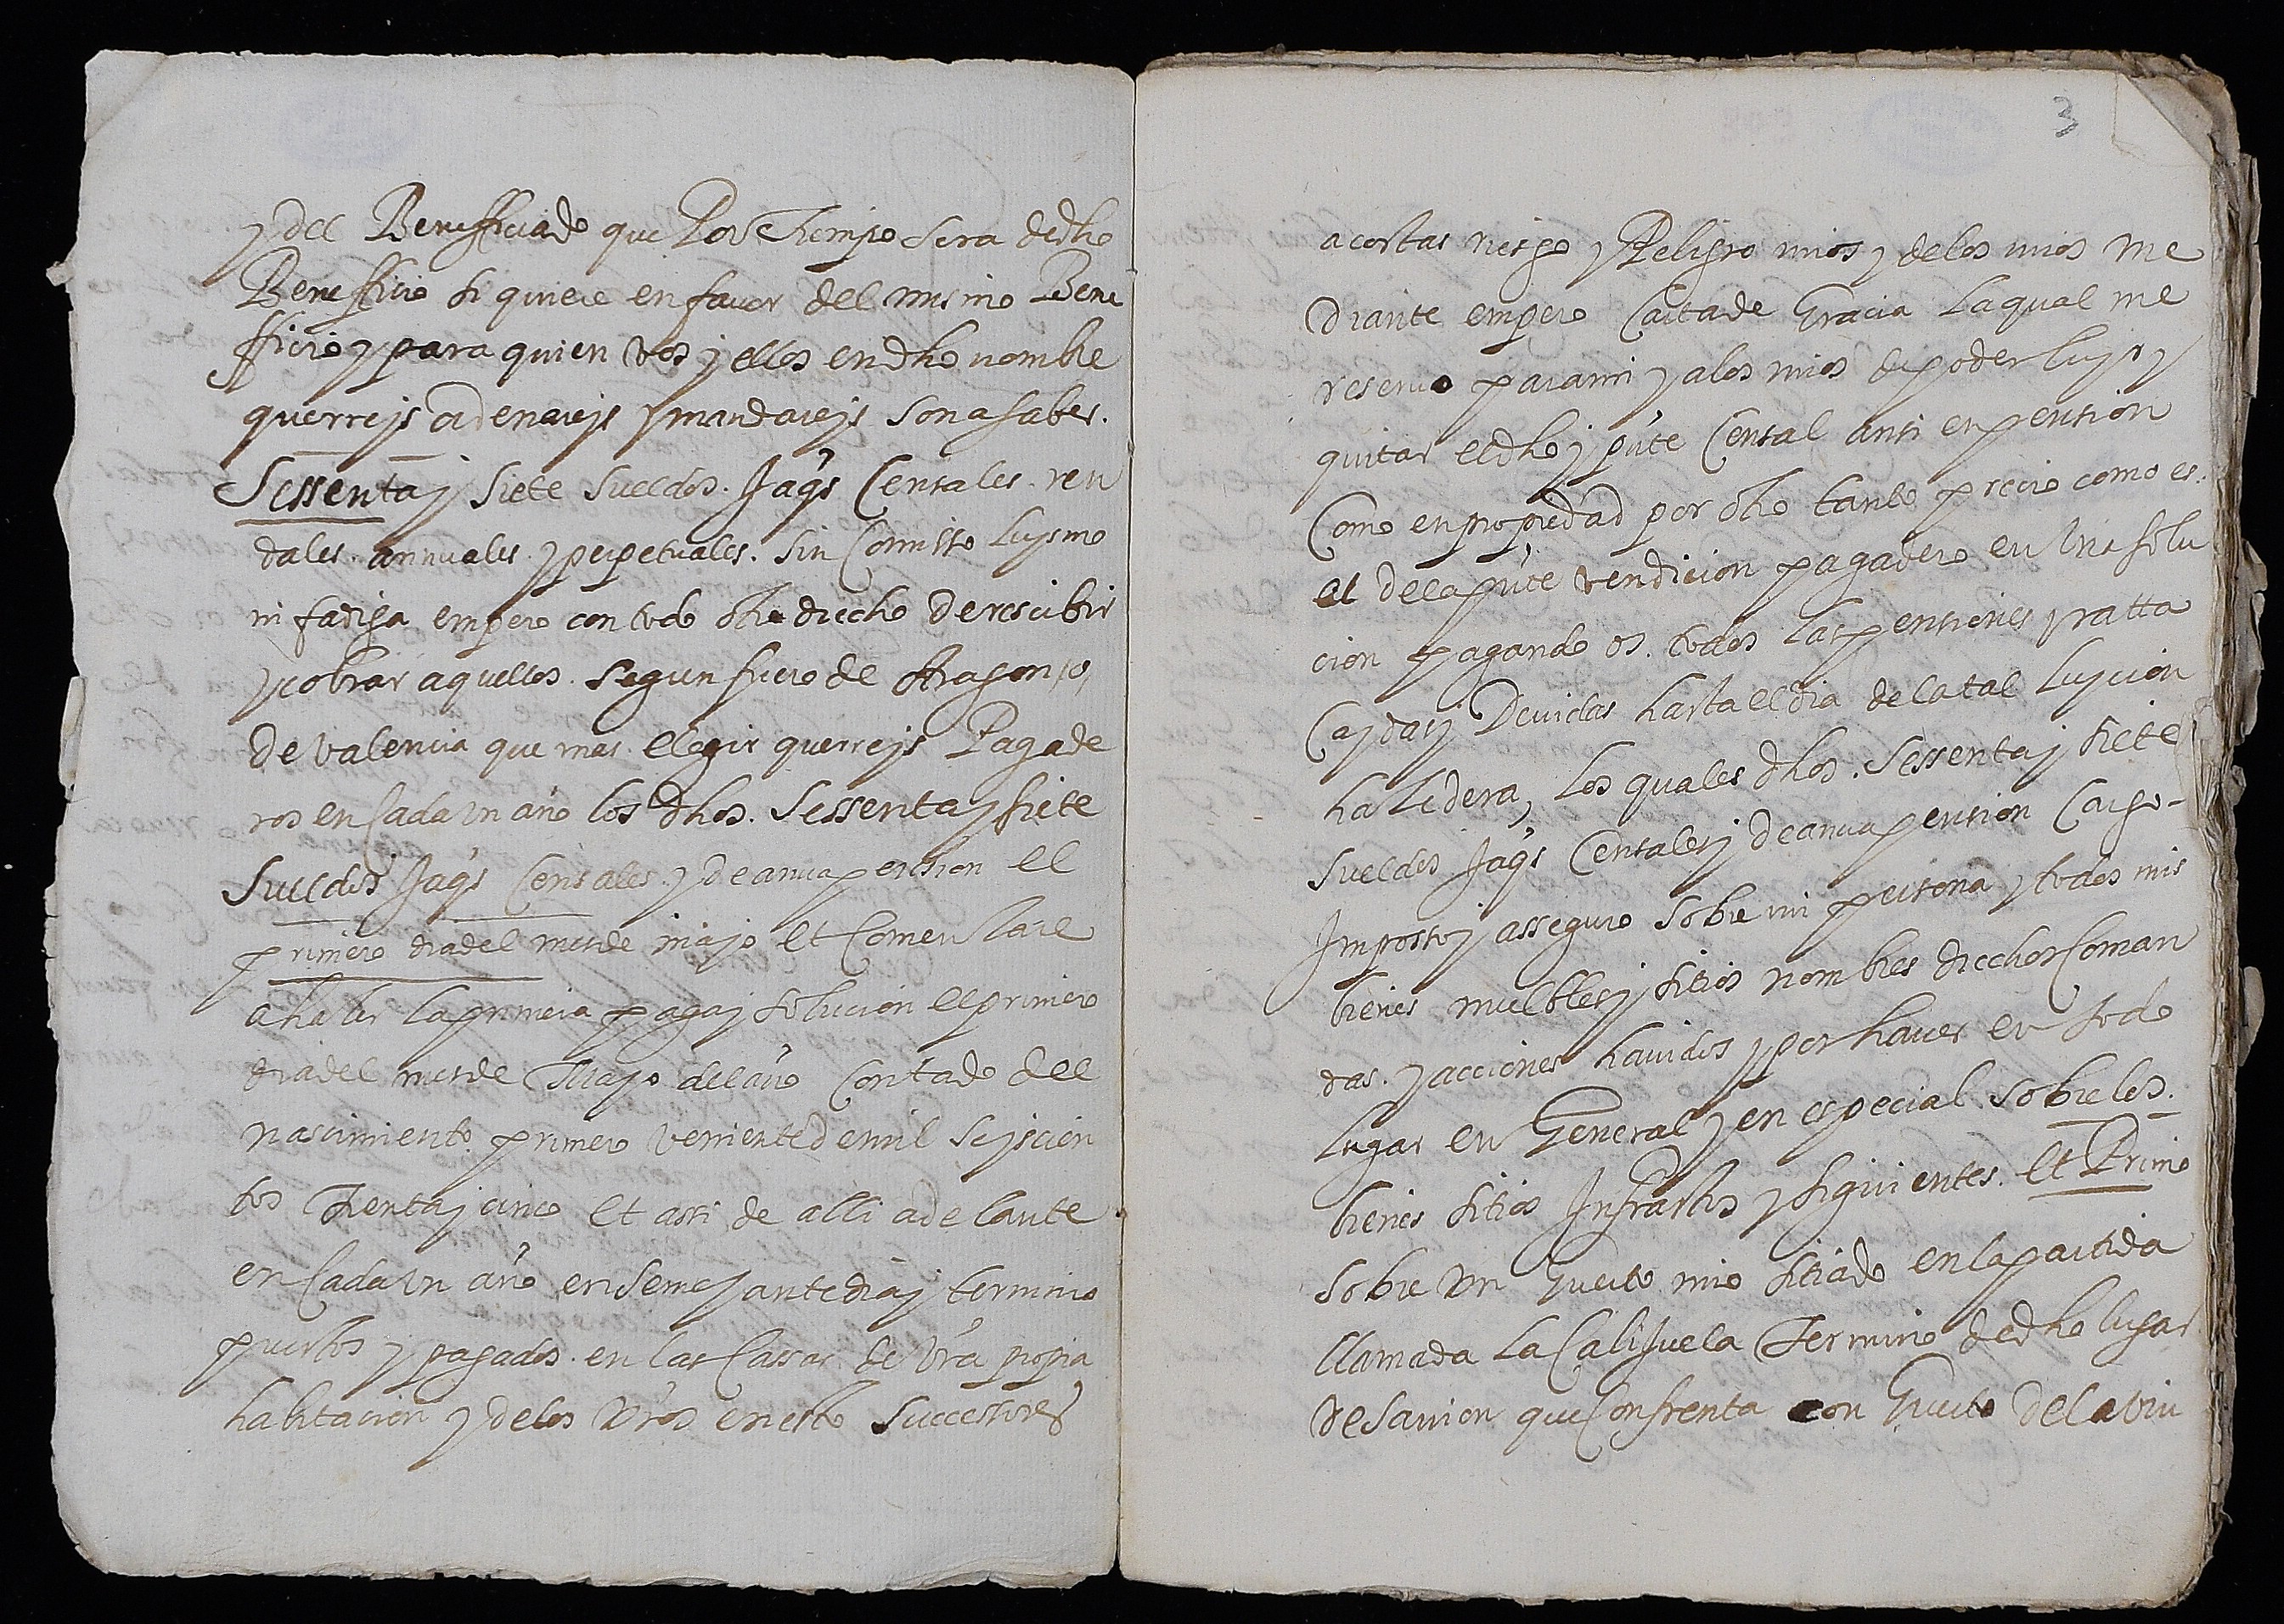 y del Benefficiado que Por Tiempo sera dedho
Benefficio si quiere en favor del mismo Bene
fficio y para quien vos y ellos en dho nombre
querreys ordenareys y mandareys son asaber.
Sessenta y siete sueldos. Jaqs Censales. ren
dales. annuales. y perpetuales. sin Comisso luysmo
ni fadiga empero con todo otro drecho de rescibir
y cobrar aquellos. segun fuero de Aragon, o,
de valencia que mas. elegir querreys Pagade
ros en Cada un año los dhos. Sessenta y siete
sueldos Jaqs Censales. y de anua pension el
primero dia del mes de mayo et Comenzare
a hazer la primera paga y solucion el primero
dia del mes de Mayo del año Contado del
nascimiento primero veniente de mil seyscien
tos Trenta y cinco et assi de alli adelante
en Cada un año en semejante dia y termino
puestos y pagados. en las Cassas de vra propia
habitacion y delos vros en esto successores
3
a costas riesgo y Peligro mios y delos mios me
diante empero Carta de Gracia laqual me
reservo para mi y alos mios de poder luyr y
quitar el dho y pnte Censal ansi en pension
Como en propiedad por otro tanto precio como es.
el dela pnte vendicion pagadero en una solu
cion pagando os. todos las pensiones y ratta
Caydas y Devidas hasta el dia dela tal luycion
hazedera, los quales dhos. Sessenta y siete
sueldos Jaqs Censales y de anua pension Cargo-
Imposo y asseguro sobre mi persona y todos mis
bienes muebles y sitios nombres drechos Coman
das. y acciones havidos y por haver en todo
lugar en General y en especial sobre los.
bienes sitios Infrastos y siguientes. et Primo
sobre un Guerto mio sitiado en la partida
llamada la Calijuela Termino dedho lugar
de sarrion que Confrenta con Guerto dela viu